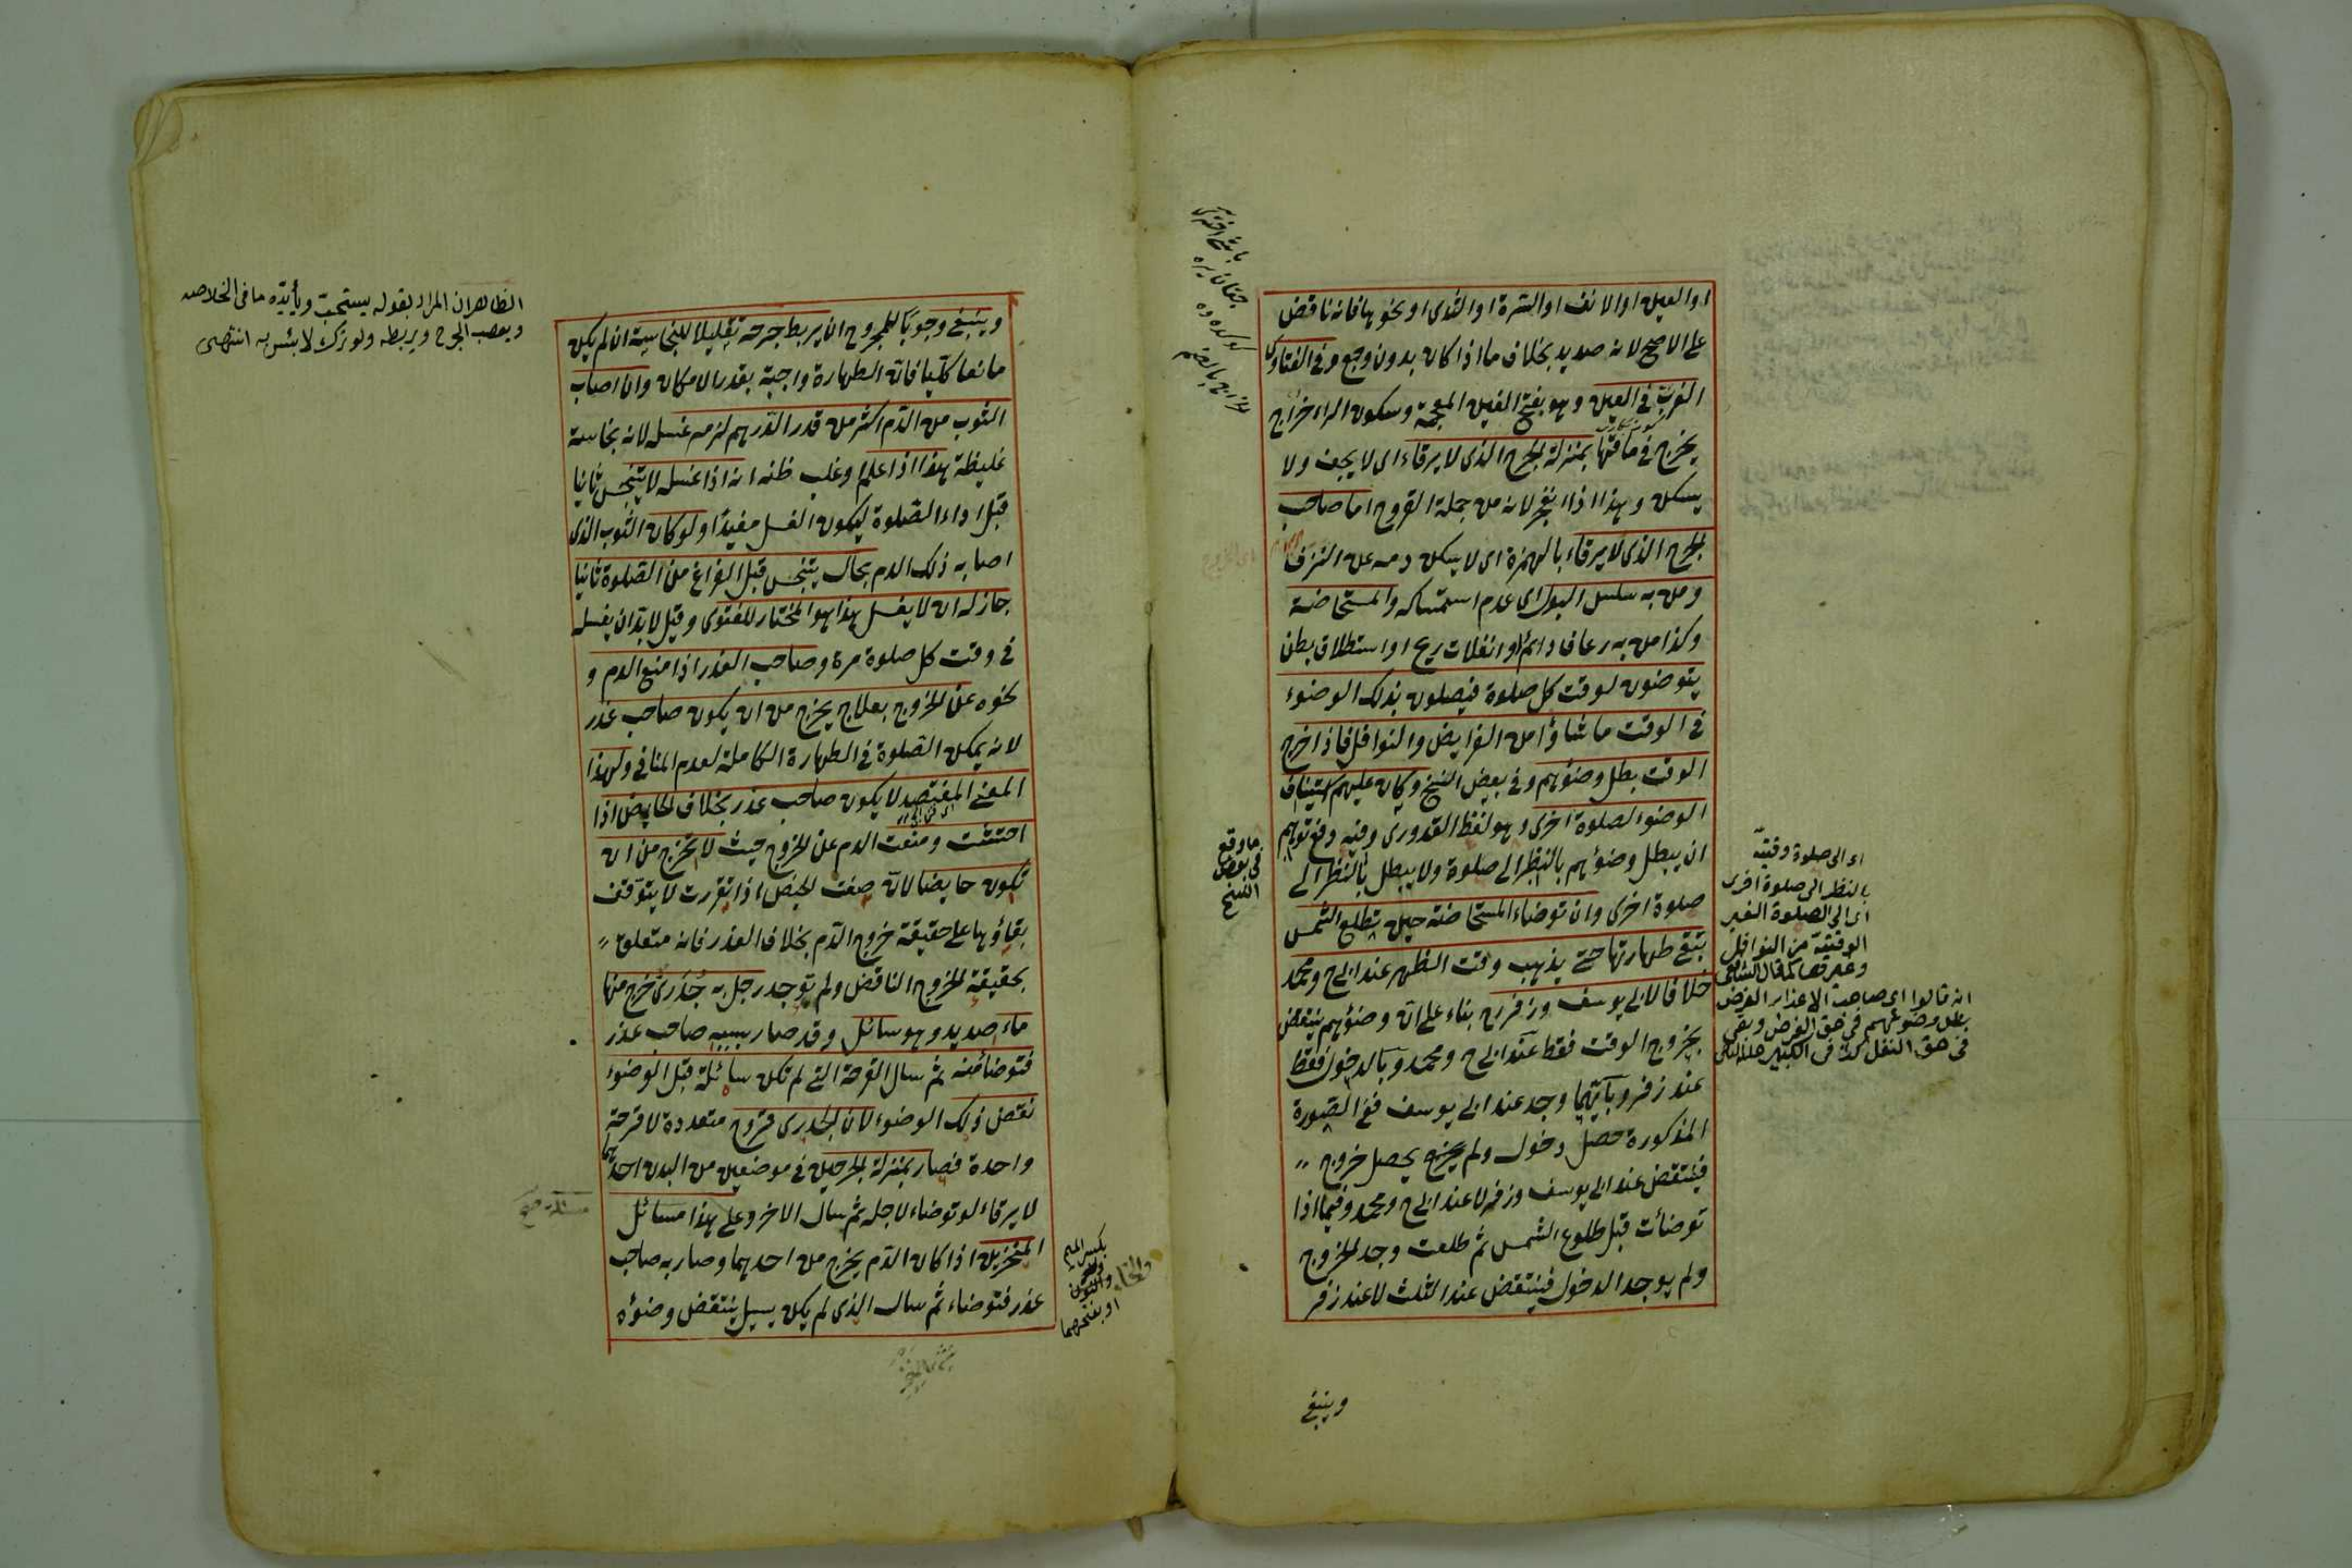 او العين او الانف او السرة او الثدى او نحوها فانه ناقض
على الاصح لانه صديد بخلاف ما اذا كان بدون وجع وفى الفتاوى
الغرب فى العين وهو بفتح الغين المعجمة وسكون الراء خراج
يخرج فى مآقها بمنزلة الجرح الذى لا يرقاء اى لا يجف ولا
يسكن وهذا اذا انفجر لانه من جملة القروح اما صاحب
الجرح الذى لا يرقاء بالهمزة اى لا يسكن دمه عن النزف
ومن به سلس البول اى عدم استمساكه والمستحاضة
وكذا من به رعاف دائم او انفلات ريح او استطلاق بطن
يتوضئون لوقت كل صلوة فيصلون بذلك الوضوء
فى الوقت ما شاؤا من الفرايض والنوافل فاذا خرج
الوقت بطل وضوئهم وفى بعض النسخ وكان عليهم استيناف
الوضوء لصلوة اخرى وهو لفظ القدورى وفيه دفع توهم
ان يبطل وضوئهم بالنظر الى صلوة ولا يبطل بالنظر الى
صلوة اخرى وان توضاء المستحاضة حين تطلع الشمس
تبقى طهارتها حتى يذهب وقت الظهر عند ابى ح ومحمد
خلافا لابى يوسف وزفر رح بناء على ان وضوئهم ينتقض
بخروج الوقت فقط عند ابى ح ومحمد وبالدخول فقط
عند زفر وبايهما وجد عند ابى يوسف ففى الصورة
المذكورة حصل دخول ولم يحصل خروج
فينتقض عند ابى يوسف وزفر لا عند ابى ح ومحمد وفيما اذا
توضأت قبل طلوع الشمس ثم طلعت وجد الخروج
ولم يوجد الدخول فينتقض عند الثلث لا عند زفر
وينبغى
ما وقع
فى بعض
النسخ
اى الى صلوة وقتية
بالنظر الى صلوة اخرى
اى الى الصلوة الغير
الوقتية من النوافل
وغيرها كما قال الشافعى
انه قالوا اى صاحب الاعذار الفرض
بطل وضوئهم فى حق الفرض وبقى
فى حق النفل كذا فى الكبير
وينبغى وجوبا للمجروح ان يربط جرحه تقليلا للنجاسة ان لم يكن
مانعا كليا فان الطهارة واجبة بقدر الامكان وان اصاب
الثوب من الدم اكثر من قدر الدرهم لزمه غسله لانه نجاسة
غليظة هذا اذا علم وغلب ظنه انه اذا غسله لا يتنجس ثانيا
قبل اداء الصلوة ليكون الغسل مفيدا ولو كان الثوب الذى
اصابه ذلك الدم بحال يتنجس قبل الفراغ من الصلوة ثانيا
جاز له ان لا يغسل هذا هو المختار للفتوى وقيل لا بد ان يغسله
فى وقت كل صلوة مرة وصاحب العذر اذا منع الدم و
نحوه عن الخروج بعلاج يخرج من ان يكون صاحب عذر
لانه يمكن الصلوة فى الطهارة الكاملة لعدم المنافى ولهذا
المعنى المفتصد لا يكون صاحب عذر بخلاف الحايض اذا
احتشت ومنعت الدم عن الخروج حيث لا تخرج من ان
تكون حايضا لان صفت الحيض اذا تقررت لا يتوقف
بقاؤها على حقيقة خروج الدم بخلاف العذر فانه متعلق
بحقيقة الخروج الناقض ولم توجد رجل به جدرى خرج منها
ماء صديد وهو سائل وقد صار بسببه صاحب عذر
فتوضأ منه ثم سال القرحة التى لم تكن سائلة قبل الوضوء
نقض ذلك الوضوء لان الجدرى قروح متعددة لا قرحة
واحدة فصار بمنزلة الجرحين فى موضعين من البدن احدهما
لا يرقاء لو توضاء لاجله ثم سال الاخر وعلى هذا مسائل
المنخرين اذا كان الدم يخرج من احدهما وصار به صاحب
عذر فتوضاء ثم سال الذى لم يكن يسيل ينتقض وضوئه
الظاهر ان المراد بقوله يستحب ويأيده ما فى الخلاصه
ويعصب الجرح ويربطه ولو ترك لا بئس به انتهى
بكسر الميم
والخاء
او بفتحهما